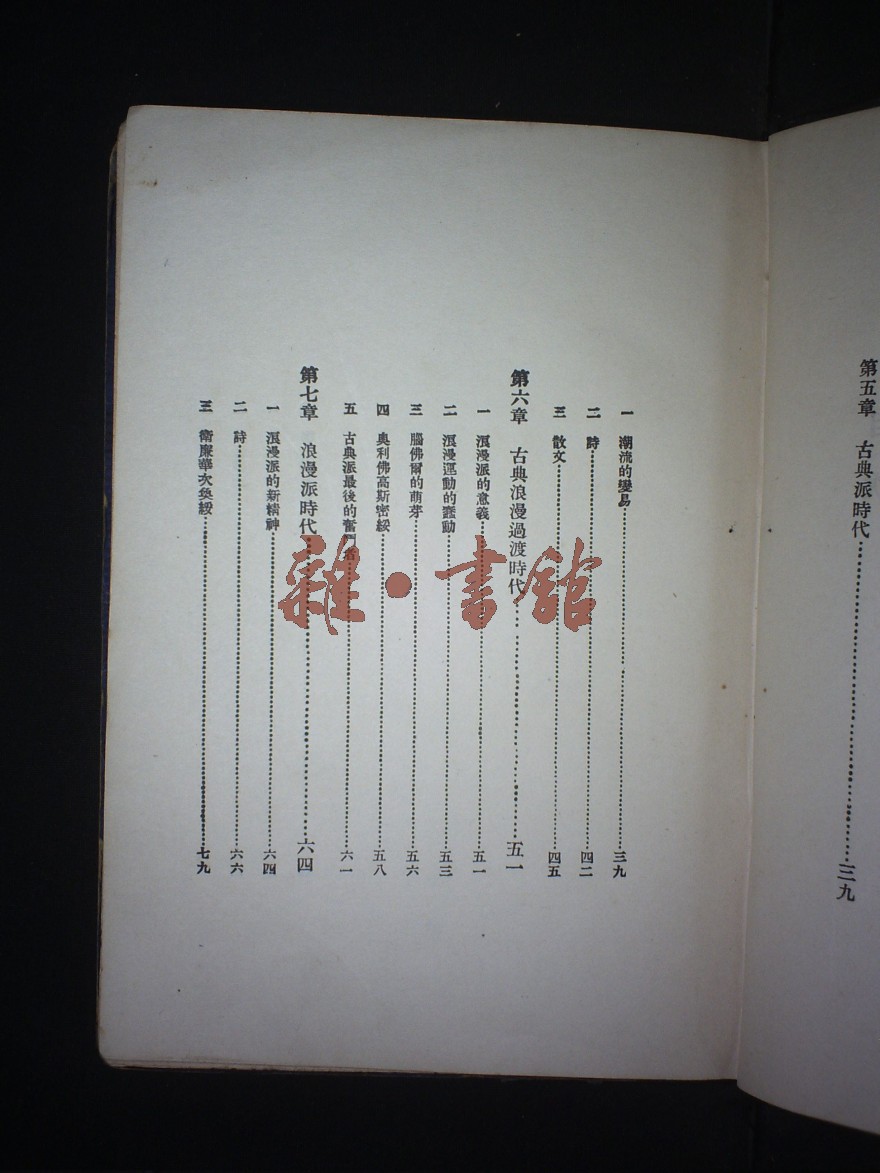 第五章 古典派時代……三九
一 潮流的變易……三九
二 詩……四二
三 散文……四五
第六章 古典浪漫過渡時代……五一
一 浪漫派的意義……五一
二 浪漫運動的蠢動……五三
三 腦佛爾的萌芽……五六
四 奧利佛高斯密綏……五八
五 古典派最後的奮鬥者……六一
第七章 浪漫派時代……六四
一 浪漫派的新精神……六四
二 詩……六六
三 衛廉華次奐綏……七九
雜·書館